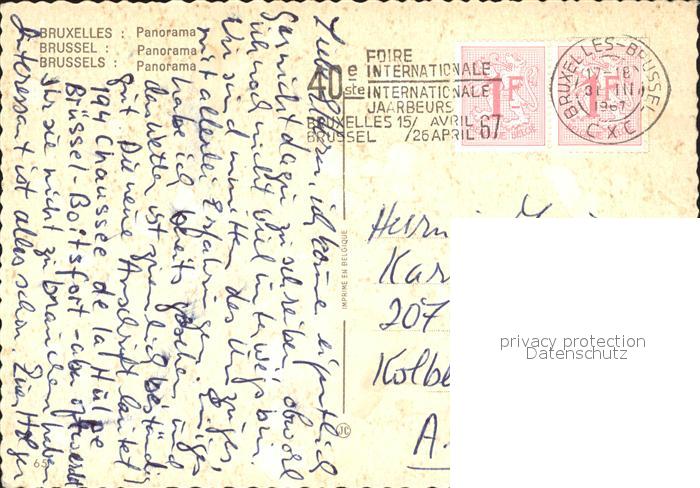 BRUXELLES : Panorama
BRUSSEL : Panorama
BRUSSELS : Panorama
40e FOIRE INTERNATIONALE
ste INTERNATIONALE JAARBEURS
BRUXELLES 15/ AVRIL 67
BRUSSEL /26 APRIL
BRUXELLES-BRUSSEL
17-18
1967
C X C
1F
1F
ich komme eigentlich
gar nicht dazu zu schreiben, obwohl
ich noch nicht viel unterwegs bin.
Wir sind inmitten des Umzuges,
mit allerlei Erfahrungen. Einiges
habe ich bereits gesehen und
das Wetter ist ziemlich beständig
gut. Die neue Anschrift lautet:
194 Chaussée de la Hulpe
Brüssel-Boitsfort - aber
Ihr sie nicht zu brauchen haben.
Interessant ist alles schon. Eure Holger
IMPRIMÉ EN BELGIQUE
JC
65
207
privacy protection
Datenschutz